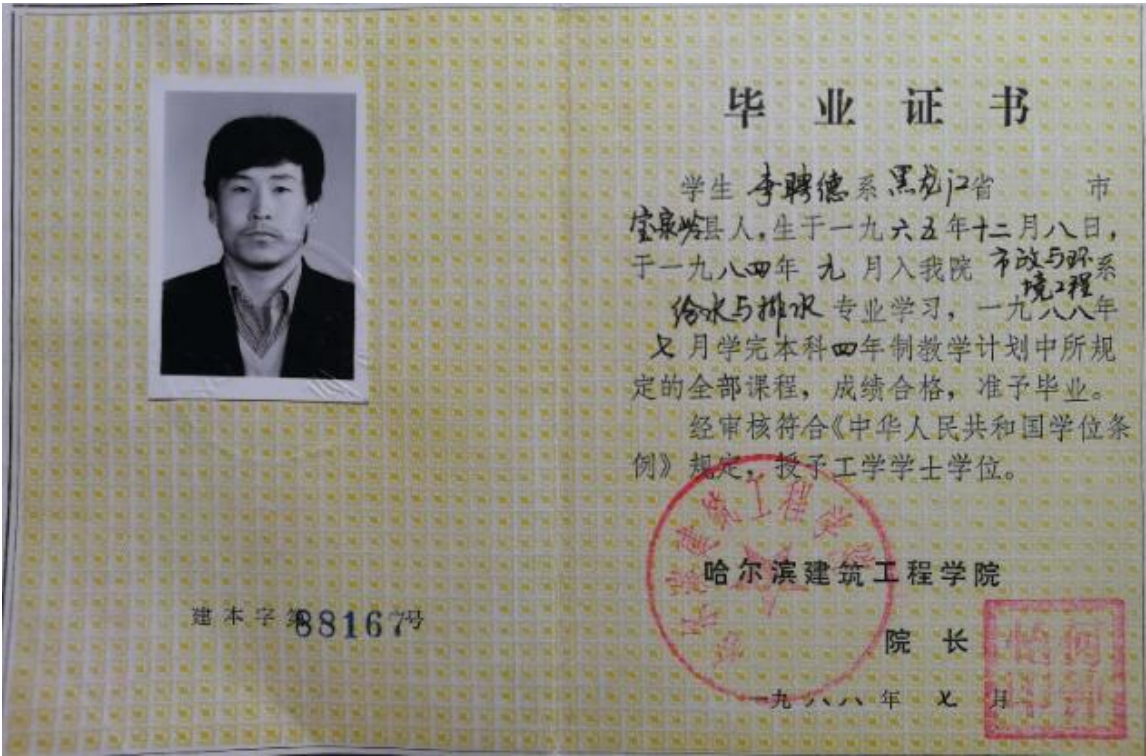 毕业证书
学生 李聘德 系 黑龙江省 市
宝泉岭县人，生于一九六五年十二月八日，
于一九八四年 九 月入我院 市政与环境工程系
给水与排水 专业学习，一九八八年
七月学完本科四年制教学计划中所规
定的全部课程，成绩合格，准予毕业。
经审核符合《中华人民共和国学位条
例》规定，授予工学学士学位。
哈尔滨建筑工程学院
哈尔滨建筑工程学院
院 长
一九八八年 七 月
建本字第88167号